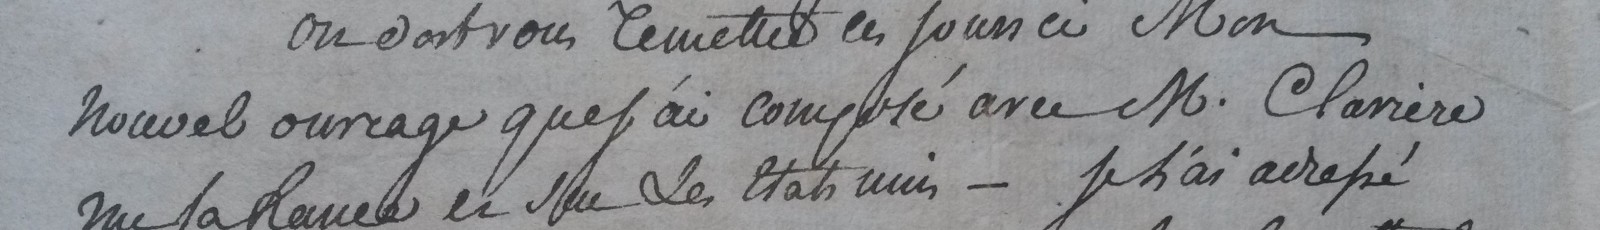 on doit vous remettre ces jours ci Mon
Nouvel ouvrage que j'ai composé avec M. Claviere
sur la france et sur Les Etats unis — je l'ai adressé